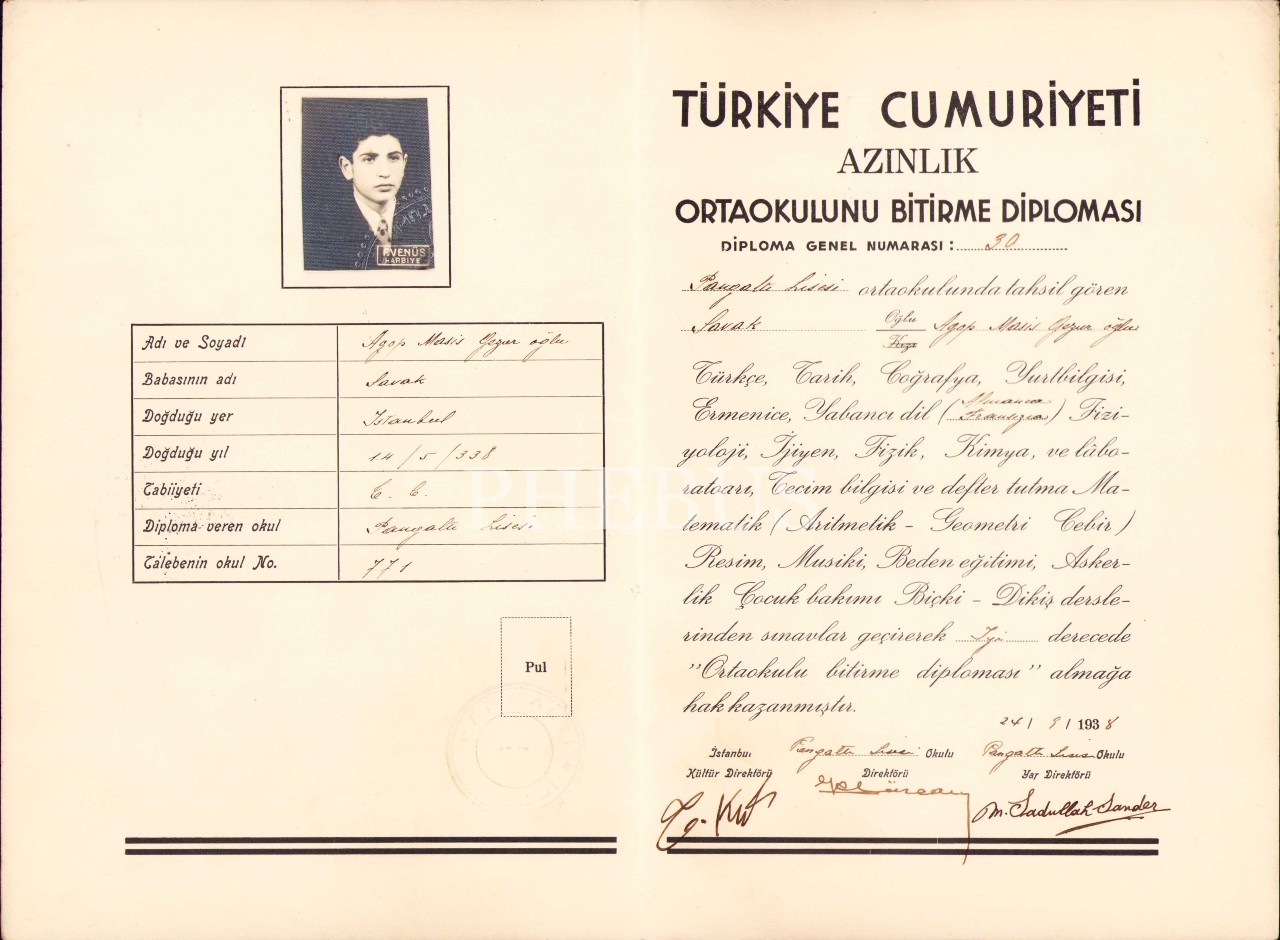 P.VENÜS
HARBİYE
Adı ve Soyadı Agop Masis Gezur oğlu
Babasının adı Savak
Doğduğu yer İstanbul
Doğduğu yıl 14/5/338
Tabiiyeti T. C.
Diploma veren okul Pangaltı Lisesi
Talebenin okul No. 771
Pul
PHEBUS
TÜRKİYE CUMURİYETİ
AZINLIK
ORTAOKULUNU BİTİRME DİPLOMASI
DİPLOMA GENEL NUMARASI : 30
Pangaltı Lisesi ortaokulunda tahsil gören
Savak Oğlu Agop Masis Gezur oğlu
Kızı
Türkçe, Tarih, Coğrafya, Yurtbilgisi,
Ermenice, Yabancı dil (Almanca Fransızca) Fizi-
yoloji, İjiyen, Fizik, Kimya, ve lâbo-
ratoarı, Tecim bilgisi ve defter tutma Ma-
tematik (Aritmetik - Geometri Cebir)
Resim, Musiki, Beden eğitimi, Asker-
lik Çocuk bakımı Biçki - Dikiş dersle-
rinden sınavlar geçirerek İyi derecede
"Ortaokulu bitirme diploması" almağa
hak kazanmıştır.
24/9/1938
İstanbul Pangaltı Lisesi Okulu Pangaltı Lisesi Okulu
Kültür Direktörü Direktörü Yar Direktörü
M. Sadullah Sander